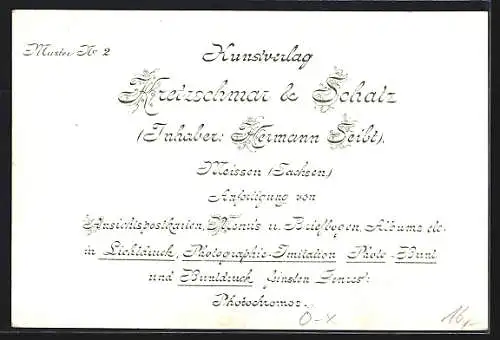 Muster No 2
Kunstverlag
Kretzschmar & Schatz
(Inhaber: Hermann Seibt).
Meissen (Sachsen)
Anfertigung von
Ansichtspostkarten, Menu's u. Briefbogen, Albums etc.
in Lichtdruck, Photographie-Imitation Photo-Bunt
und Buntdruck feinsten Genres:
Photochromor.
O-x
16,-